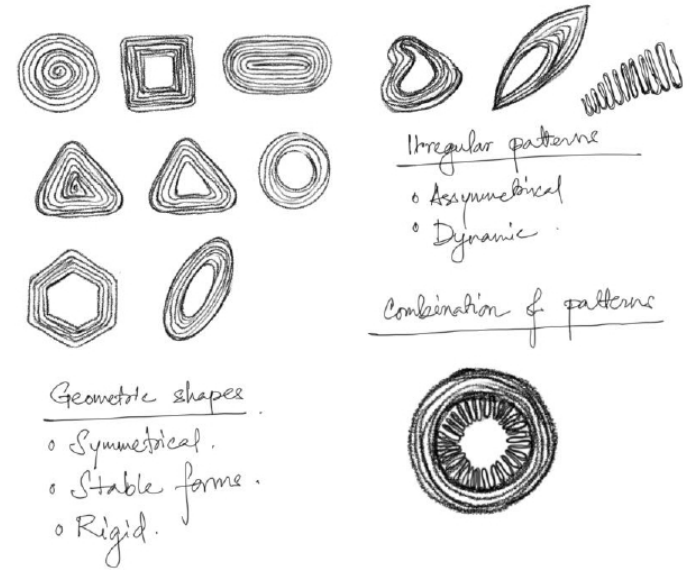 Geometric shapes.
o Symmetrical.
o Stable forms.
o Rigid.
Irregular patterns
o Assymmetrical
o Dynamic.
Combination of patterns